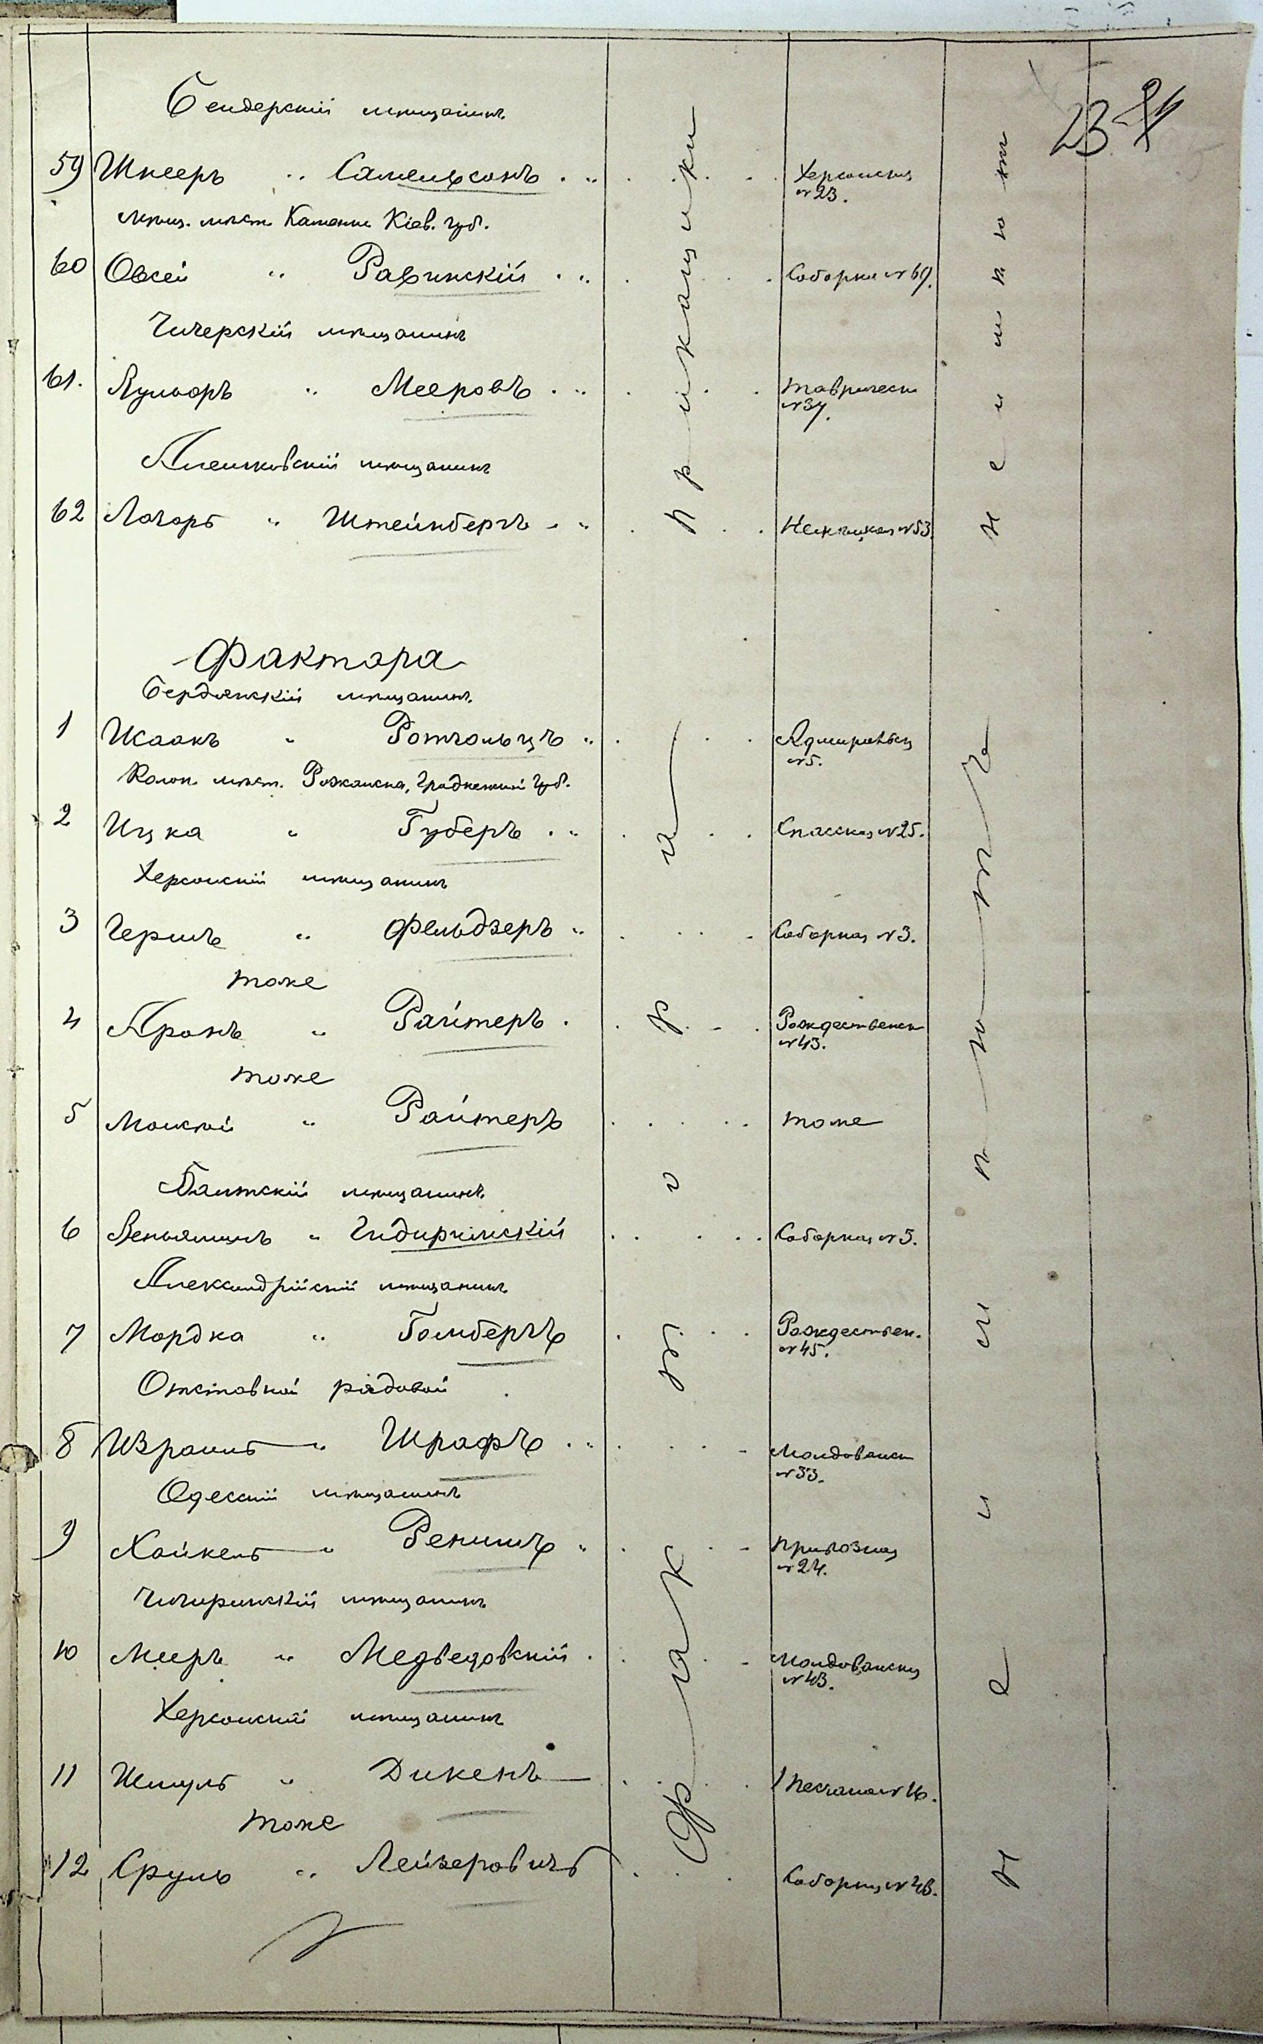 23
Бендерскій мѣщанинъ
59 Шнееръ " Самельсонъ Херсонская
№ 23.
мѣщ. мѣст. Каменки Кіев. губ.
60 Овсей " Равинскій Соборная № 69.
Чичерскій мѣщанинъ
61. Мееровъ Таврическ
№ 37.
Алешковскій мѣщанинъ
62 Лазарь " Штейнбергъ № 53.
Приказщики
не имѣютъ
Фактора
Бердянскій мѣщанинъ
1 Исаакъ " Ротгольцъ Адмиральск
№ 5.
мѣст. Гродненской губ.
2 Ицка " Губеръ Спасская № 25.
Херсонскій мѣщанинъ
3 Гершъ " Фельдзеръ Соборная № 3.
тоже
4 Аронъ " Райтеръ Рождественск
№ 43.
тоже
5 Моисей " Райтеръ тоже
Балтскій мѣщанинъ
6 Веньяминъ " Соборная № 5.
Александрійскій мѣщанинъ
7 Мордка " Гомбергъ Рождествен.
№ 45.
Отставной рядовой
8 Израиль " Шрафъ Молдованск
№ 33.
Одесскій мѣщанинъ
9 Хайкель " Ренишъ Привозная
№ 24.
Чигиринскій мѣщанинъ
10 Мееръ " Медведовскій Молдованская
№ 43.
Херсонскій мѣщанинъ
11 Шмуль " Дикенъ Песчаная № 16.
тоже
12 Сруль " Лейзеровичъ Соборная № 46.
Фактора
Не имѣютъ